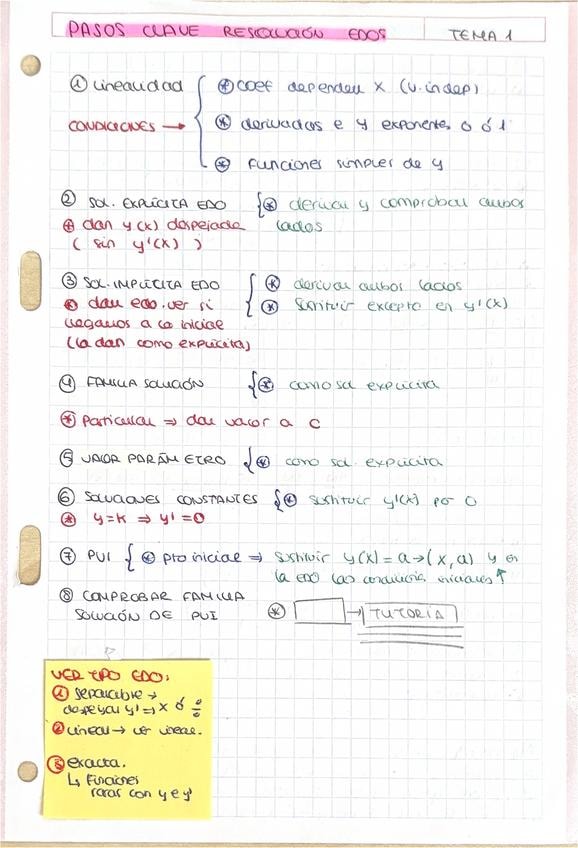 PASOS CLAVE RESOLUCIÓN EDOS TEMA 1
① Linealidad
⊛ coef dependen x (v. indep)
CONDICIONES →
⊛ derivadas e y exponentes 0 ó 1
⊛ funciones simples de y
② SOL. EXPLÍCITA EDO
⊛ derivar y comprobar ambos lados
⊛ dan y(x) despejada
( sin y'(x) )
③ SOL. IMPLÍCITA EDO
⊛ derivar ambos lados
⊛ sustituir excepto en y'(x)
⊛ dan edo. ver si
llegamos a la inicial
(la dan como explícita)
④ FAMILIA SOLUCIÓN
⊛ como sol explícita
⊛ Particular ⇒ dar valor a C
⑤ VALOR PARÁMETRO
⊛ como sol. explícita
⑥ SOLUCIONES CONSTANTES
⊛ sustituir y'(x) por 0
⊛ y=k ⇒ y'=0
⑦ PVI { ⊛ pto inicial ⇒ sustituir y(x)=a→(x,a) y en
la EDO las condiciones iniciales ↑
⑧ COMPROBAR FAMILIA
SOLUCIÓN DE PVI ⊛ → TUTORÍA
VER TIPO EDO:
① separable →
despejar y' ⇒ x ó ÷
② Lineal → ver lineal.
③ exacta.
↳ Funciones
raras con y e y'